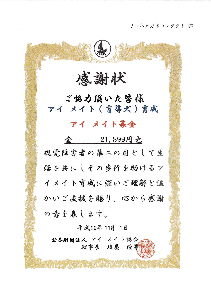 感謝状
ご協力頂いた皆様
アイメイト(盲導犬)育成
アイメイト基金
金 21,899円也
視覚障害者の第二の目として生
活を共にしその歩行を助けるア
イメイト育成に深いご理解と温
かいご支援を賜り、心から感謝
の意を表します。
公益財団法人 アイメイト協会